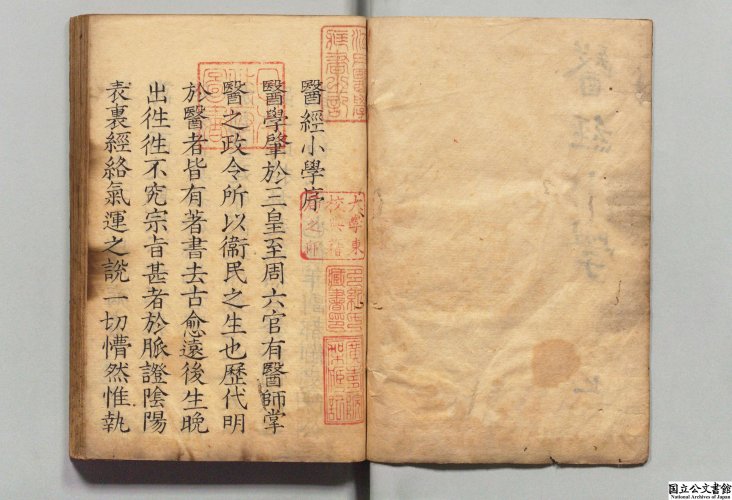 醫經小學序
醫學肇於三皇至周六官有醫師掌
醫之政令所以衞民之生也歷代明
於醫者皆有著書去古愈遠後生晚
出徃徃不究宗旨甚者於脉證隂陽
表裏經絡氣運之說一切懵然惟執
醫經小學
國立公文書館
National Archives of Japan